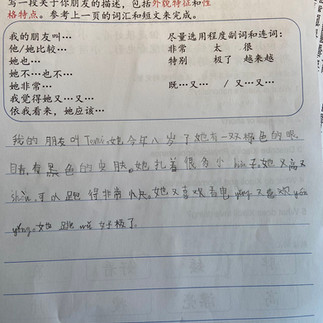 写一段关于你朋友的描述,包括外貌特征和性
格特点。参考上一页的词汇和短文来完成。
我的朋友叫… 尽量选用程度副词和连词:
他/她比较… 非常 太 很
她也… 特别 极了 越来越
她不…也不…
她非常… 既…又… / 又…又…
我觉得她又…又…
依我看来,她应该…
我的朋友叫Toni,她今年八岁了她有一双绿色的眼
目青,有黑色的皮肤。她扎着很多小 她又高又
跑得非常快。她又喜欢看电 又喜欢
她跳 好极了。